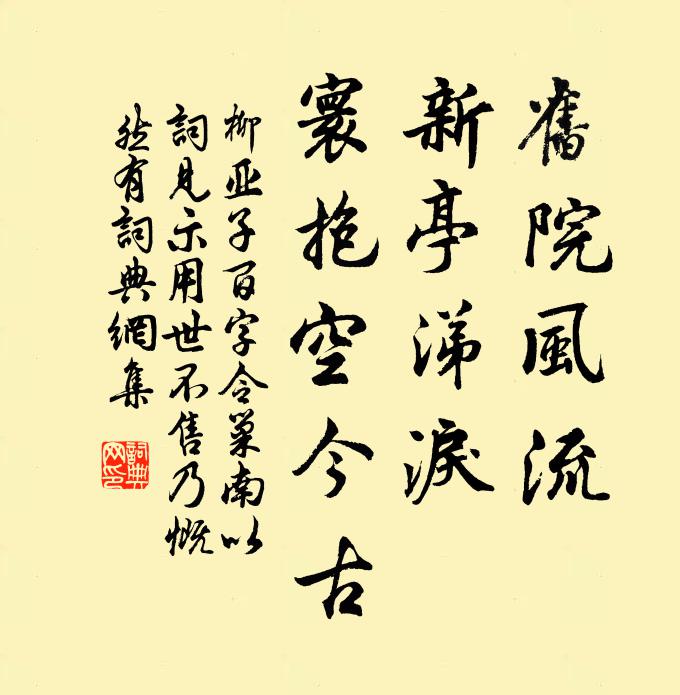 舊院風流
新亭涕淚
寰抱空今古
柳亞子百字令巢南以
詞見示用世不售乃慨
然有詞典網集
詞典
网印